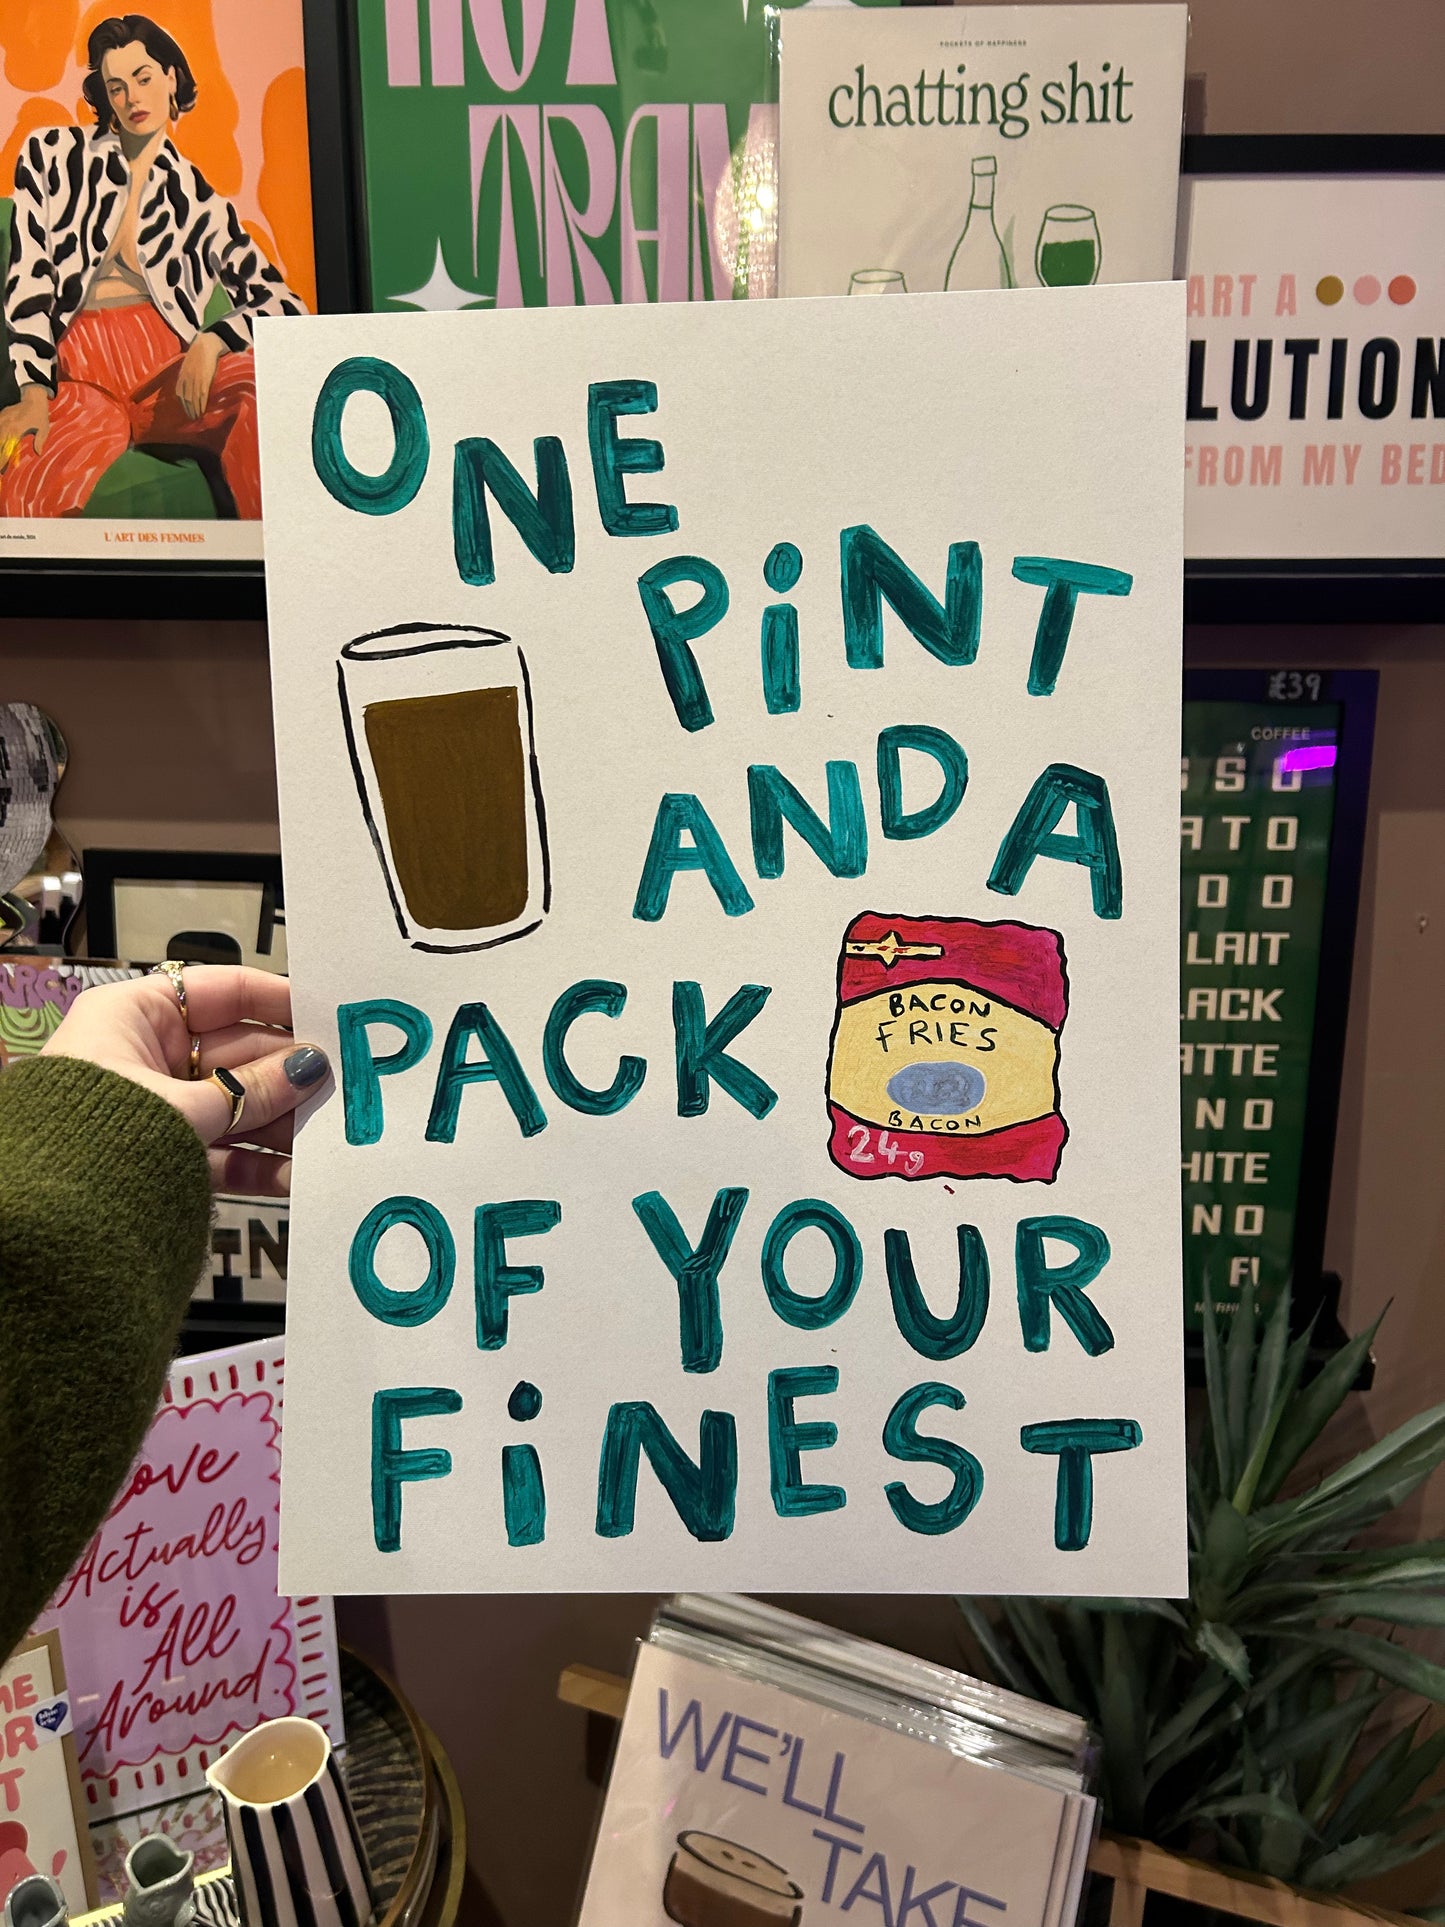 HOT
POCKETS OF HAPPINESS
chatting shit
ART A
LUTION
FROM MY BED
L'ART DES FEMMES
ONE
PiNT
AND A
PACK
BACON
FRIES
BACON
24g
OF YOUR
FiNEST
£39
COFFEE
SSO
ATO
DO
LAIT
LACK
ATTE
NO
HITE
NO
Love
Actually
is
All
Around.
WE'LL
TAKE